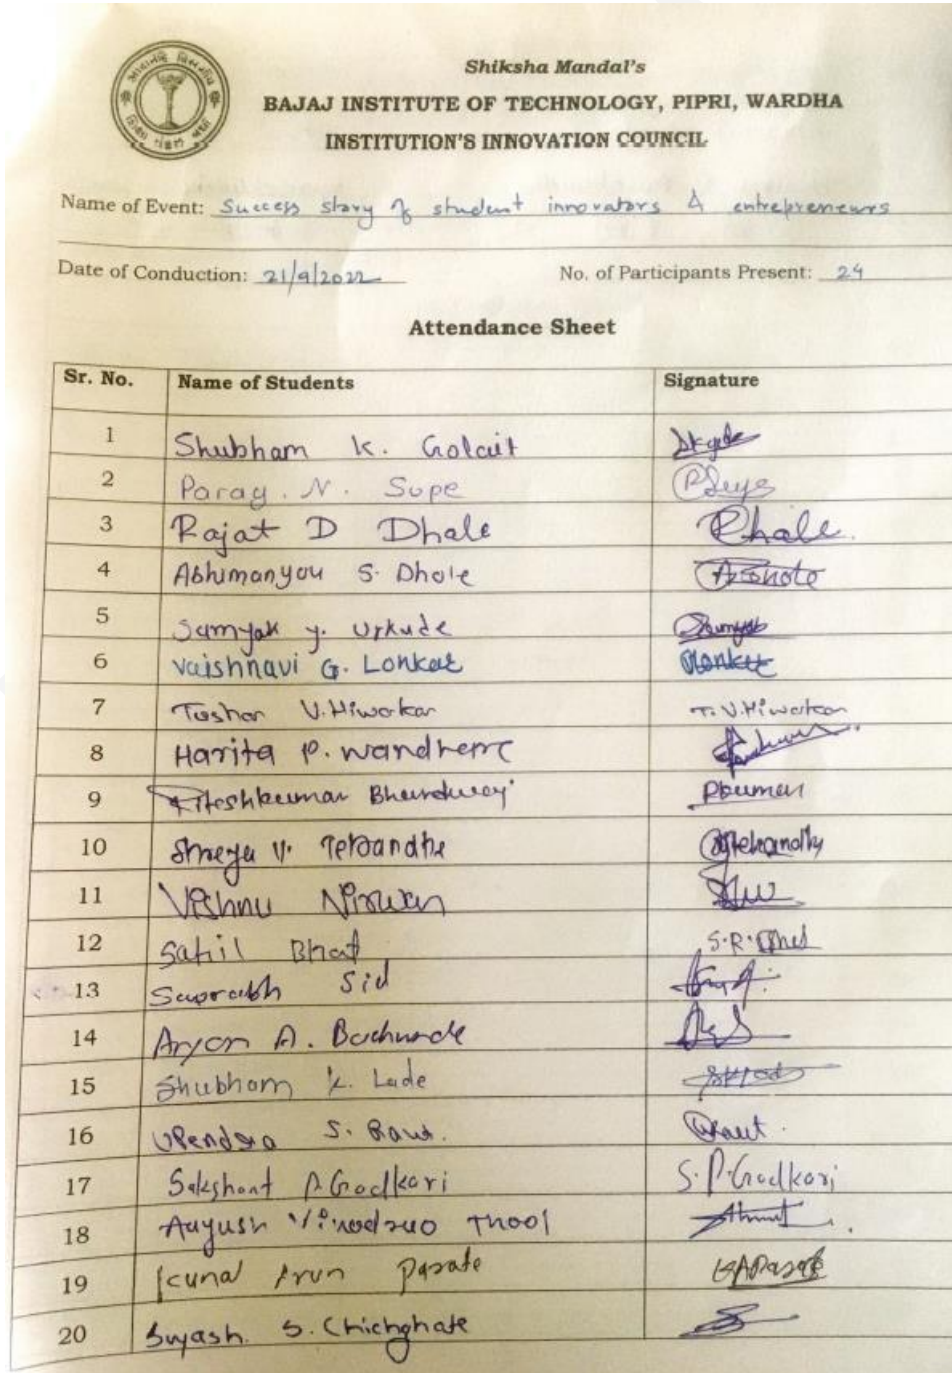 Shiksha Mandal's
BAJAJ INSTITUTE OF TECHNOLOGY, PIPRI, WARDHA
INSTITUTION'S INNOVATION COUNCIL
Name of Event: Success story of student innovators & entrepreneurs
Date of Conduction: 21/9/2022 No. of Participants Present: 24
Attendance Sheet
Sr. No. Name of Students Signature
1 Shubham K. Golait
2 Parag. N. Supe
3 Rajat D Dhale Dhale.
4 Abhimanyou S. Dhole
5 Samyak y. Urkude Samyak
6 Vaishnavi G. Lonkar
7 Tushar V. Hiwarkar T.V.Hiwarkar
8 Harita P. Wandhere
9 Riteshkumar Bharadwaj
10 Shreya V. Tebhandhe
11 Vishnu Nirwan
12 Sahil Bhat S.R.
13 Saurabh Sid
14 Aryan A.
15 Shubham K. Lade
16 Upendra S. Raut. Raut.
17 Sakshant P. Gadkari S.P.Gadkari
18 Aayush Vinodrao Thool
19 Kunal Arun Parate KAParate
20 Suyash. S. Chichghate